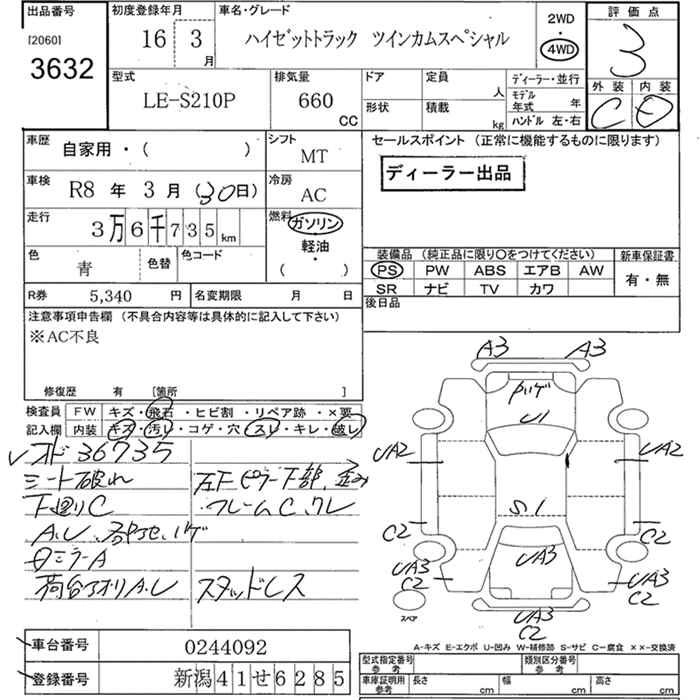 出品番号
[2060]
3632
初度登録年月
16 3月
車名・グレード
ハイゼットトラック ツインカムスペシャル
2WD
・
4WD
評価点
3
外装 内装
C D
型式
LE-S210P
排気量
660
CC
ドア
形状
定員
人
積載
kg
ディーラー・並行
モデル
年式 年
ハンドル 左・右
車歴
自家用・( )
シフト
MT
車検
R8 年 3 月 (30日)
冷房
AC
走行
3万6千735km
燃料
ガソリン
軽油
・
( )
色
青
色替
色コード
R券 5,340 円
名変期限 月 日
セールスポイント (正常に機能するものに限ります)
ディーラー出品
装備品 (純正品に限り〇をつけてください)
新車保証書
PS PW ABS エアB AW
SR ナビ TV カワ
有・無
後日品
注意事項申告欄 (不具合内容等は具体的に記入して下さい)
※AC不良
修復歴 有 [箇所 ]
検査員
記入欄
FW キズ・飛石・ヒビ割・リペア跡・×要
内装 キズ・汚レ・コゲ・穴・スレ・キレ・破レ
オド 36735
シート破れ
下廻りC
A.U. ハゲ
ミラーA
荷台アオリA.U
左Fピラー下部、歪み
フレームC、クレ
スタッドレス
A3 A3
ハゲ
U1
UA2 UA2
S1
C2 C2
UA3
UA3
C2
UA3
C2
UA3
C2
スペア
A-キズ E-エクボ U-凹み W-補修跡 S-サビ C-腐食 ××-交換済
車台番号 0244092
登録番号 新潟41せ6285
型式指定番号
参考
類別区分番号
参考
車庫証明用
参考
長さ cm 幅 cm 高さ cm